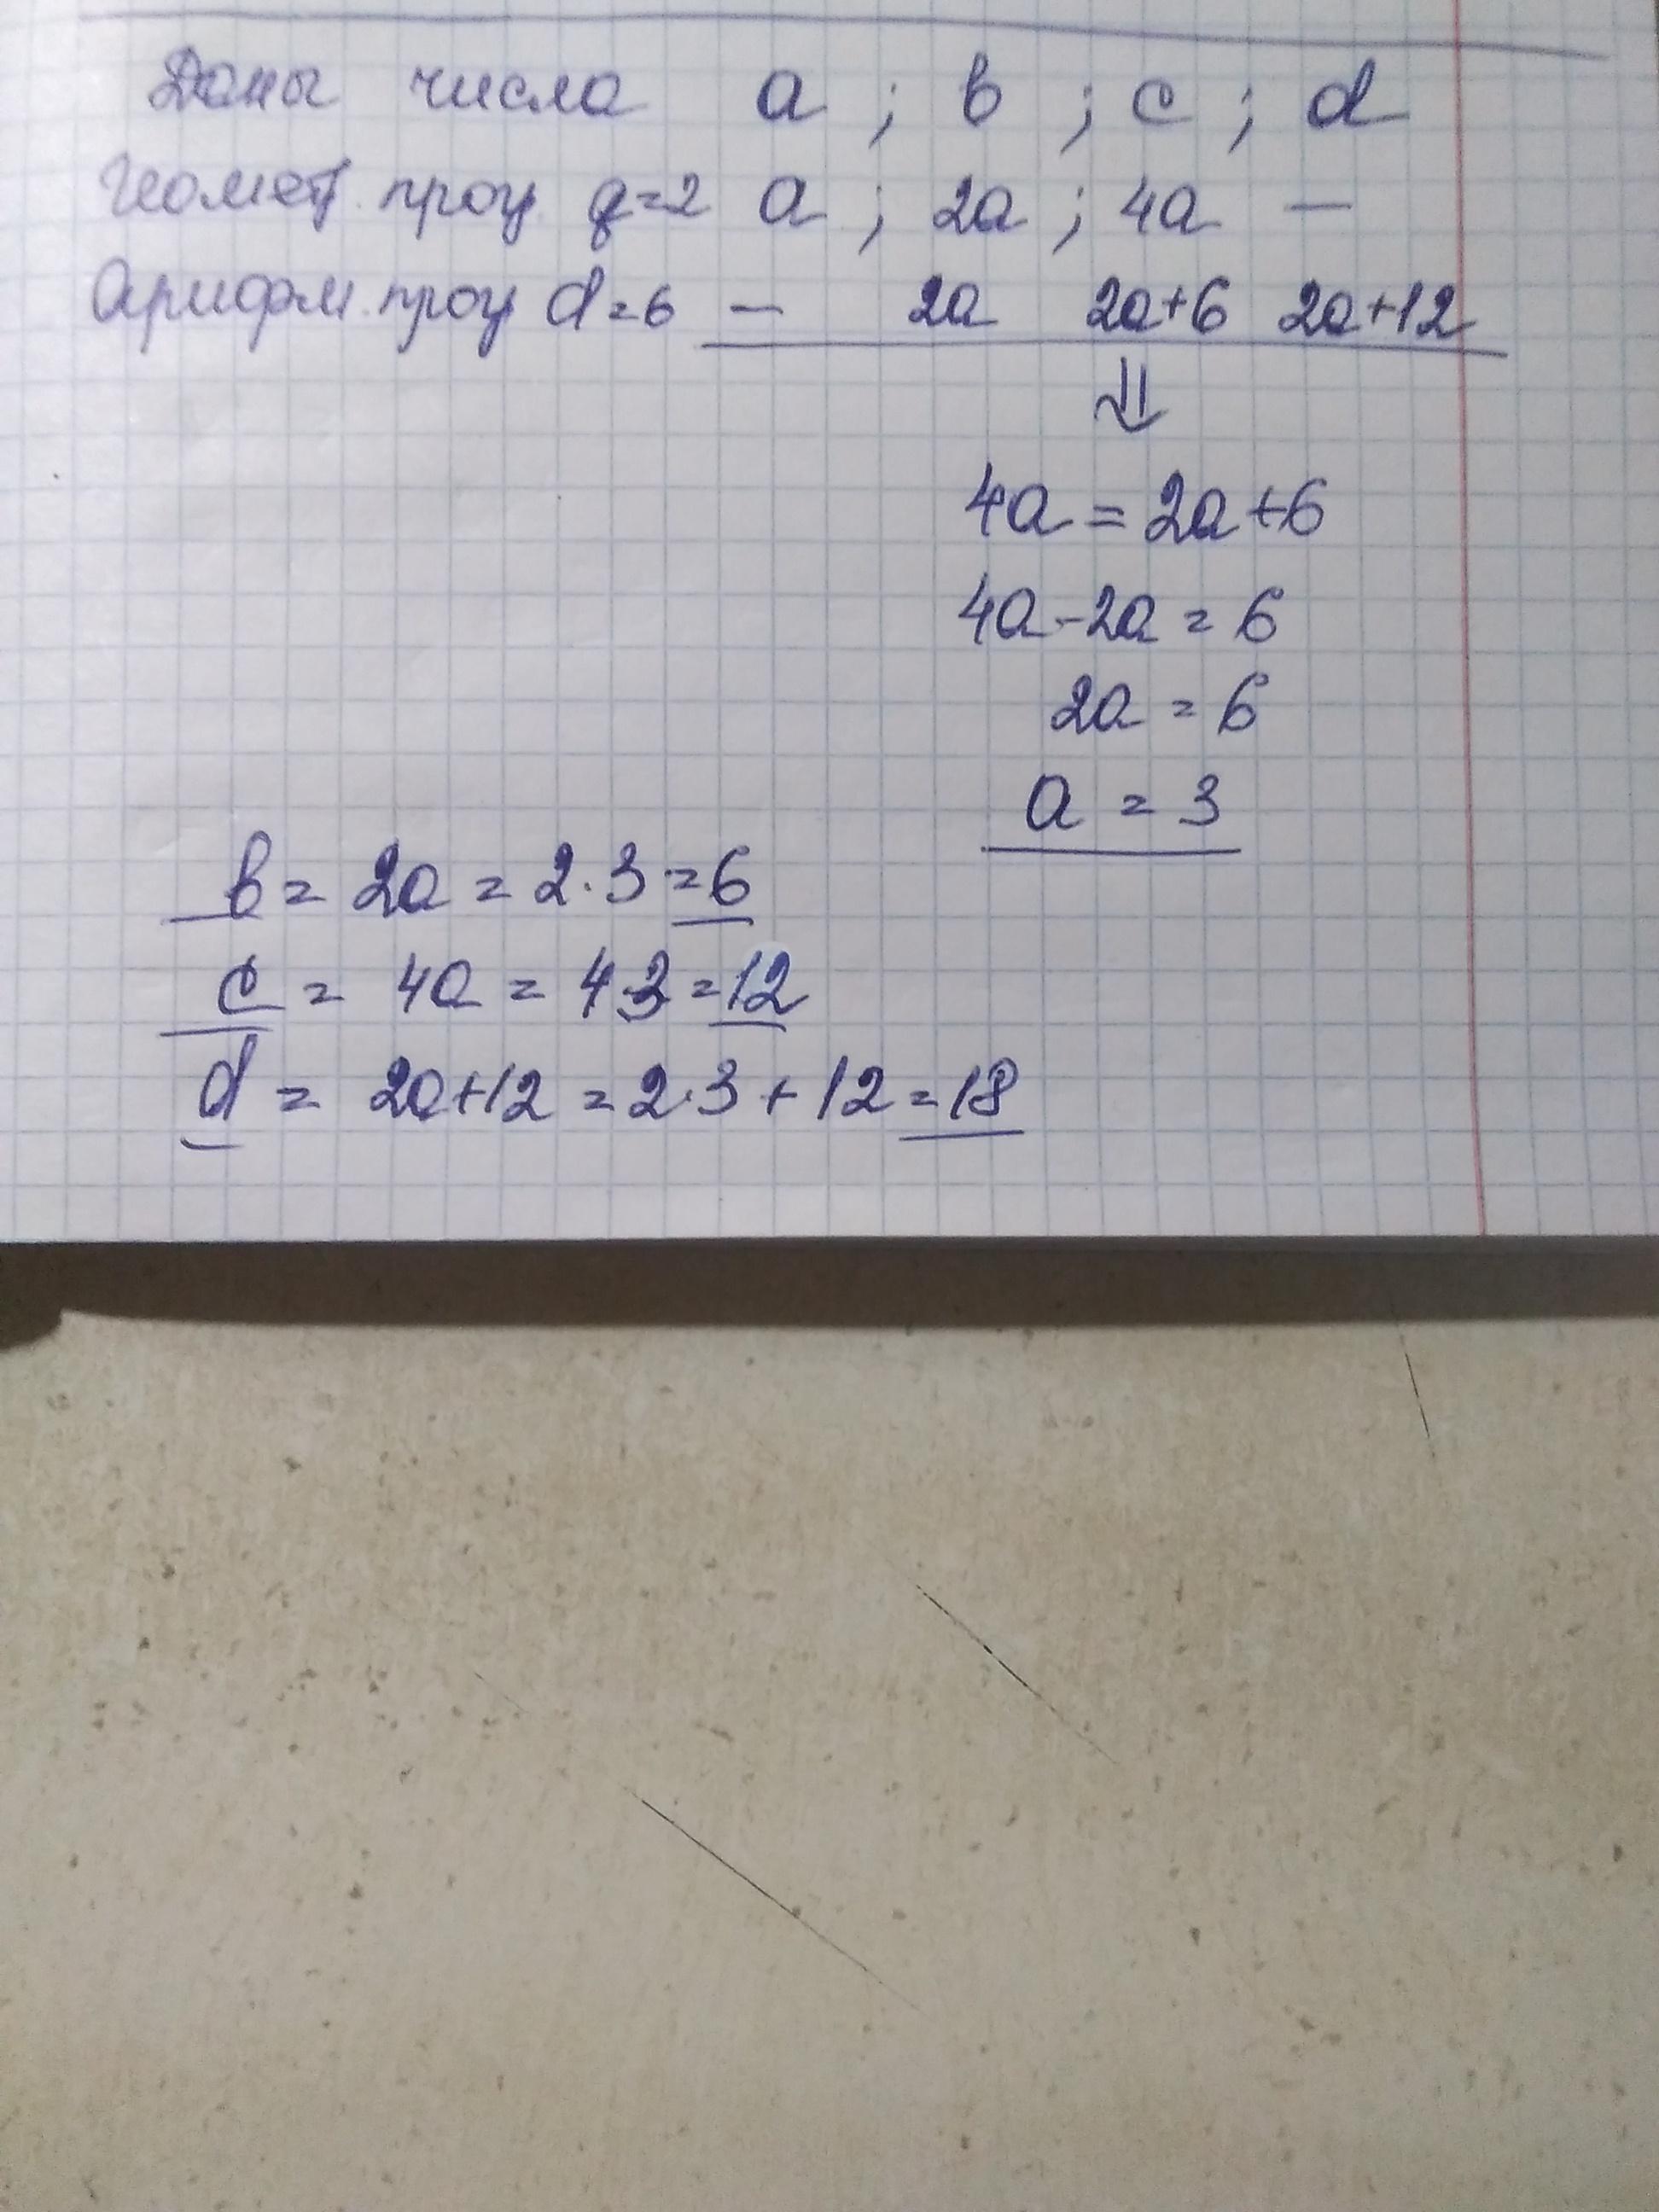 Даны числа a ; b ; c ; d
Геомет. прогр. q=2 a ; 2a ; 4a —
Арифм. прогр d=6 — 2a 2a+6 2a+12
⇓
4a = 2a+6
4a-2a = 6
2a = 6
a = 3
b = 2a = 2·3 = 6
c = 4a = 4·3 = 12
d = 2a+12 = 2·3 + 12 = 18